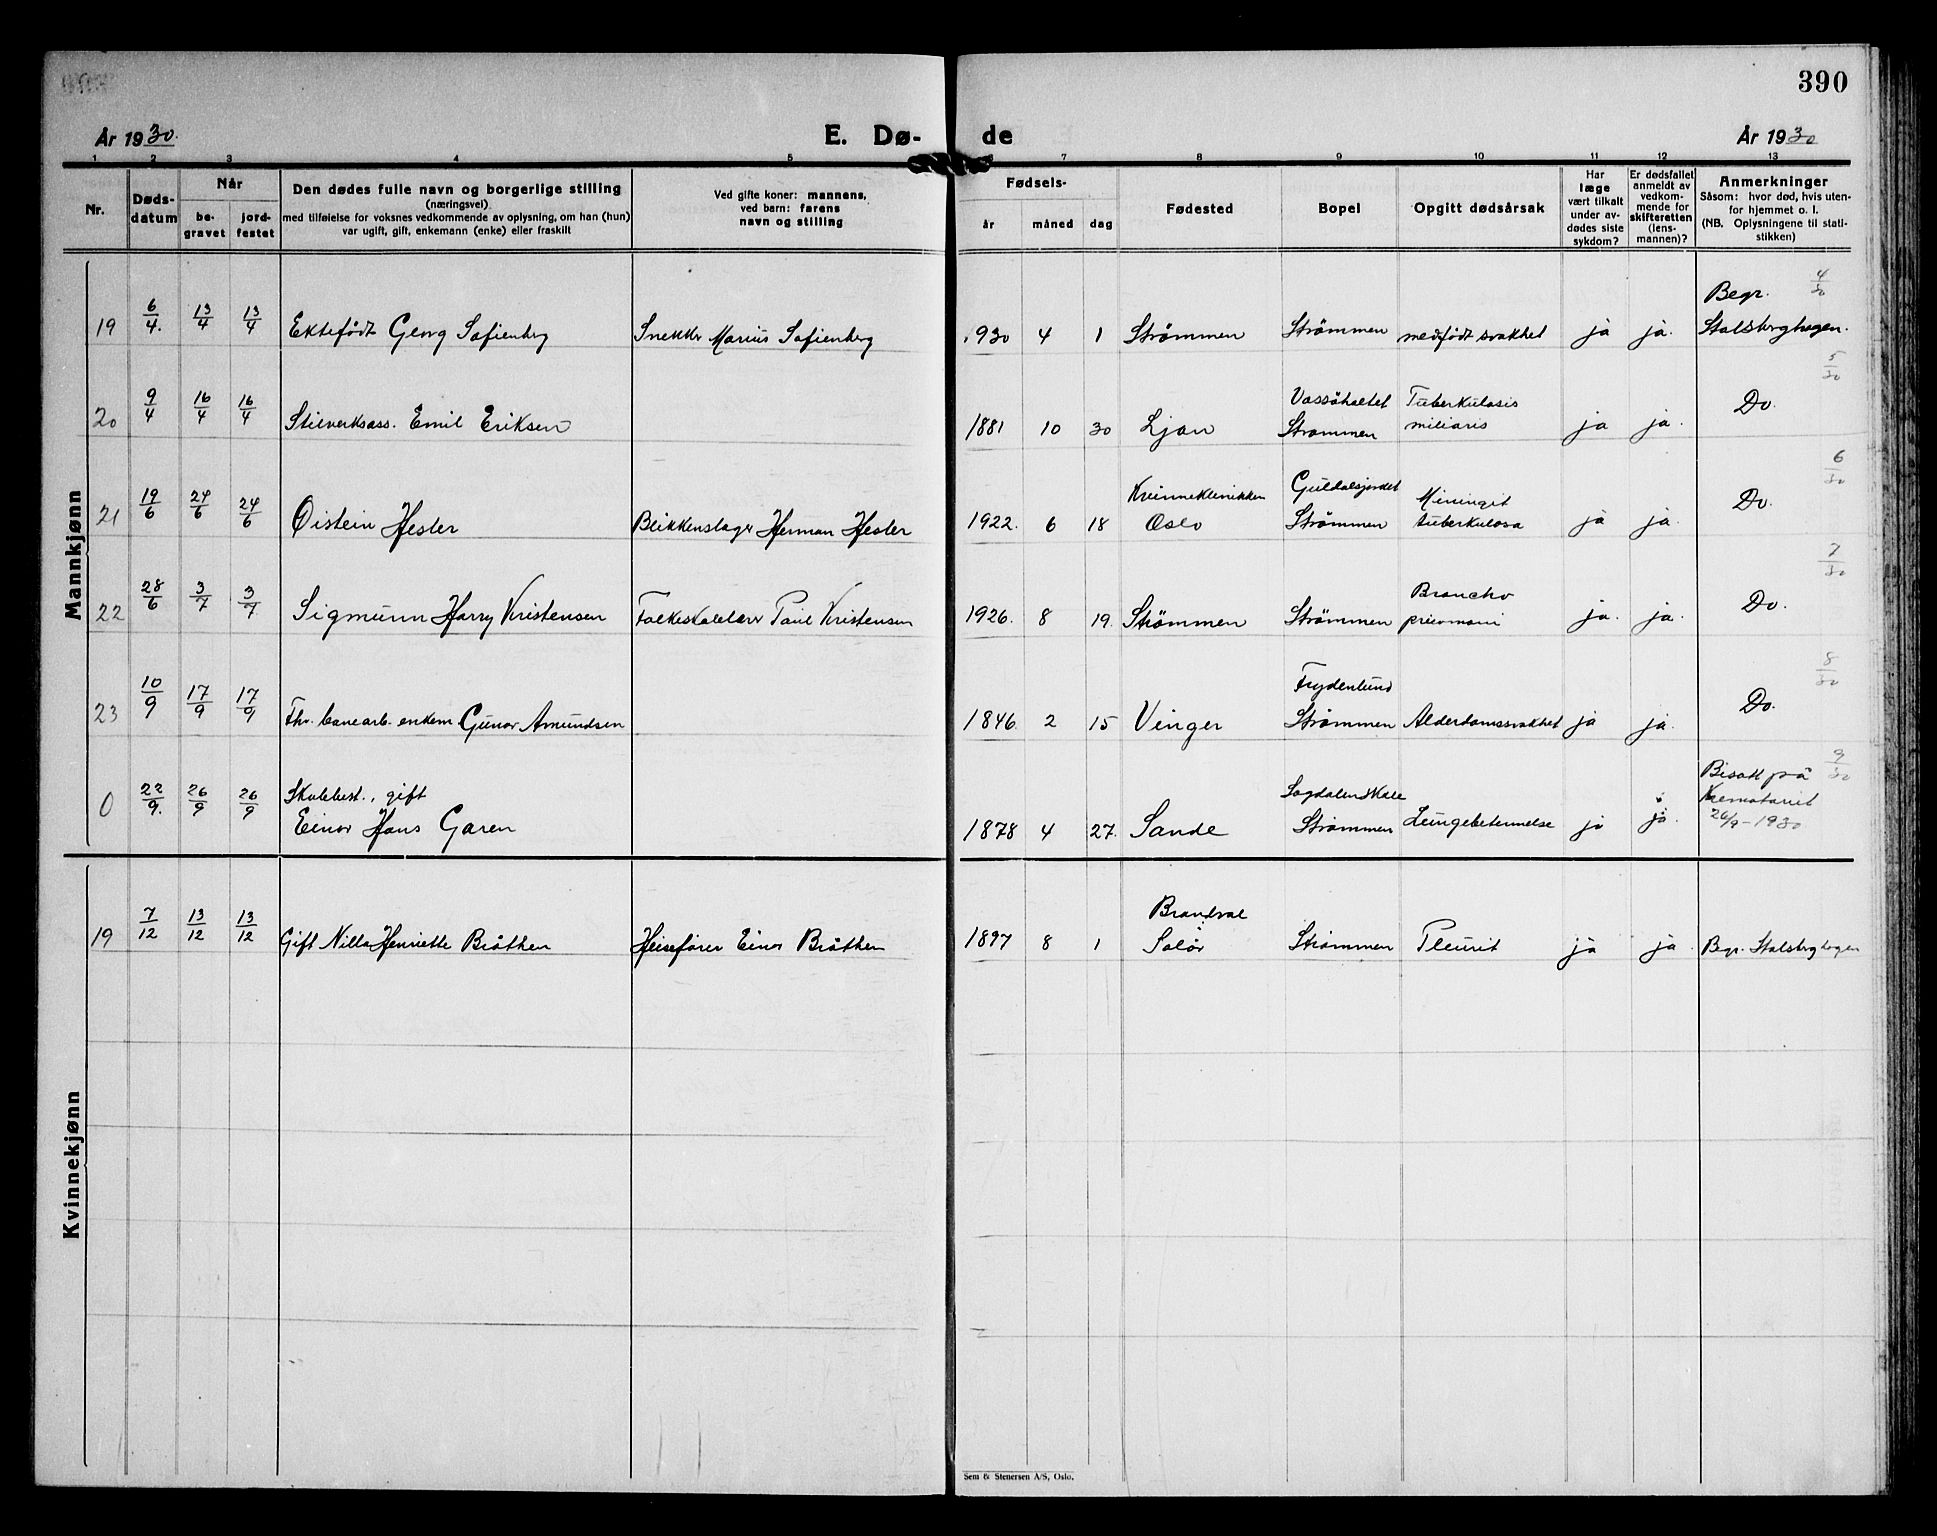 390
År 1930.
E. Dø-
de
År 1930
1 2 3 4 5 6 7 8 9 10 11 12 13
Nr.
Døds-
datum
Når
be-
gravet
jord-
festet
Den dødes fulle navn og borgerlige stilling
(næringsvei)
med tilføielse for voksnes vedkommende av oplysning, om han (hun)
var ugift, gift, enkemann (enke) eller fraskilt
Ved gifte koner: mannens,
ved barn: farens
navn og stilling
Fødsels-
år måned dag
Fødested
Bopel
Opgitt dødsårsak
Har
læge
vært tilkalt
under av-
dødes siste
sykdom?
Er dødsfallet
anmeldt av
vedkom-
mende for
skifteretten
(lens-
mannen)?
Anmerkninger
Såsom: hvor død, hvis uten-
for hjemmet o. l.
(NB. Oplysningene til stati-
stikken)
Mannkjønn
4/30
Begr.
19 6/4. 13/4 13/4 Ektefødt Georg Sofienberg Snekker Marius Sofienberg 1930 4 1 Strømmen Strømmen medfødt svakhet ja ja. Stalsberghagen.
5/30
Tuberkulosis
20 9/4 16/4 16/4 Stilverksass. Emil Eriksen 1881 10 30 Ljan Strømmen miliaris ja ja. Do.
6/30
Kvinneklinikken Guldalsjordet Miningit
21 19/6 24/6 24/6 Øistein Hesler Blikkenslager Herman Hesler 1922. 6 18 Oslo Strømmen tuberkulosa ja ja. Do.
7/30
Broncho
22 28/6 3/7 3/7 Sigmunn Harry Kristensen Folkeskolelærer Paul Kristensen 1926. 8 19. Strømmen Strømmen pneumoni ja. ja. Do.
8/30
Frydenlund
23 10/9 17/9 17/9 Fhv. banearb. enkem. Gunor Amundsen 1846. 2 15 Vinger Strømmen Alderdomssvakhet ja ja. Do.
9/30
Skolebest., gift Sagdalen skole Bisatt på
Krematoriet
0 22/9. 26/9 26/9 Einar Hans Garen 1878 4 27. Sande Strømmen Lungebetennelse ja ja. 26/9-1930
Kvinnekjønn
Brandval
19 7/12 13/12 13/12 Gift Nilla Henriette Bråthen Heisefører Einar Bråthen 1897 8 1 Solør Strømmen Pleurit ja ja. Begr. Stalsberghagen
Sem & Stenersen A/S, Oslo.